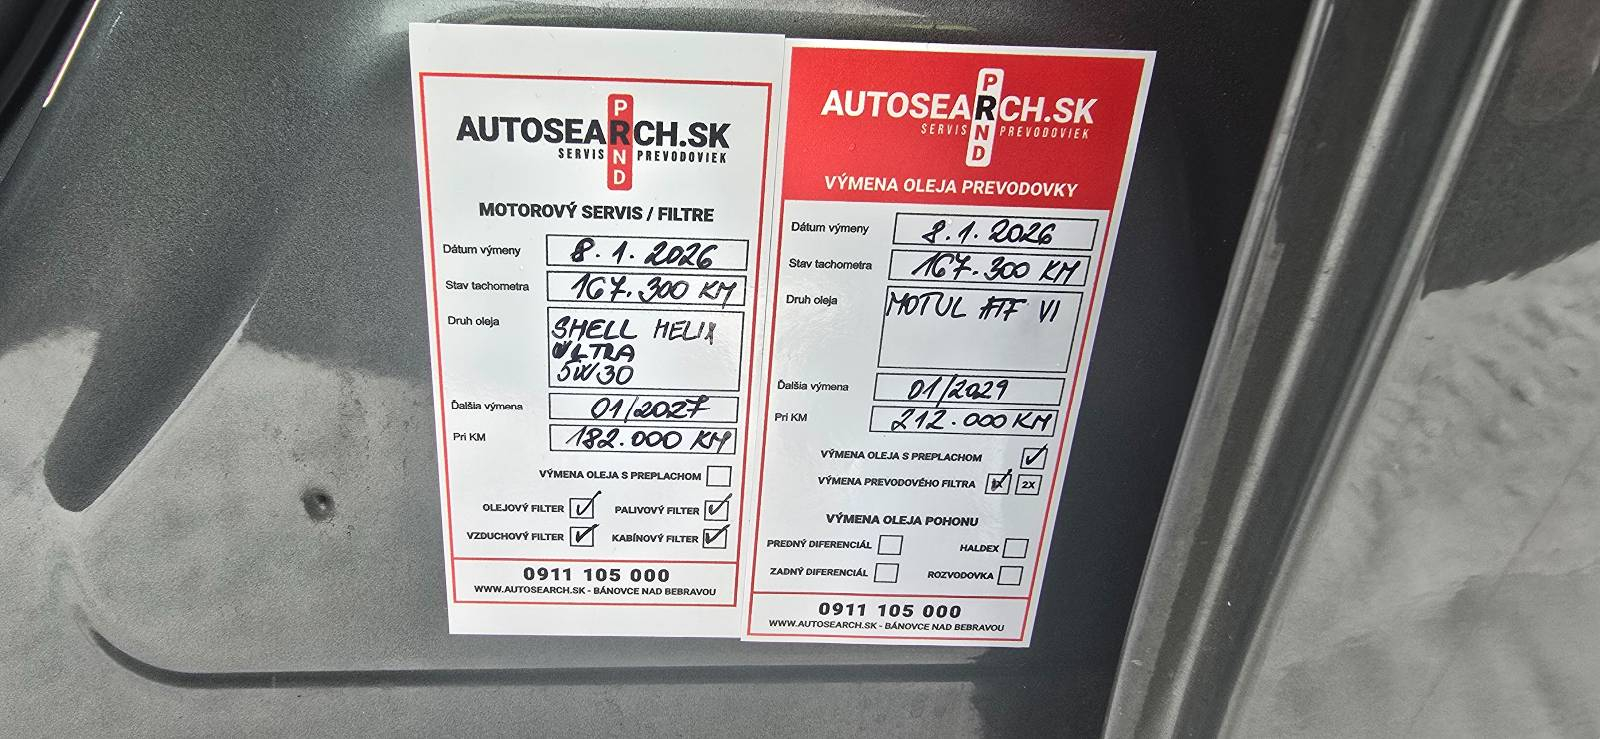 AUTOSEARCH.SK
P
R
N
D
SERVIS PREVODOVIEK
MOTOROVÝ SERVIS / FILTRE
Dátum výmeny 8.1.2026
Stav tachometra 167.300 KM
Druh oleja SHELL HELIX
ULTRA
5W30
Ďalšia výmena 01/2027
Pri KM 182.000 KM
VÝMENA OLEJA S PREPLACHOM
OLEJOVÝ FILTER ✓ PALIVOVÝ FILTER ✓
VZDUCHOVÝ FILTER ✓ KABÍNOVÝ FILTER ✓
0911 105 000
WWW.AUTOSEARCH.SK - BÁNOVCE NAD BEBRAVOU
AUTOSEARCH.SK
P
R
N
D
SERVIS PREVODOVIEK
VÝMENA OLEJA PREVODOVKY
Dátum výmeny 8.1.2026
Stav tachometra 167.300 KM
Druh oleja MOTUL ATF VI
Ďalšia výmena 01/2029
Pri KM 212.000 KM
VÝMENA OLEJA S PREPLACHOM ✓
VÝMENA PREVODOVÉHO FILTRA 1X ✓ 2X
VÝMENA OLEJA POHONU
PREDNÝ DIFERENCIÁL HALDEX
ZADNÝ DIFERENCIÁL ROZVODOVKA
0911 105 000
WWW.AUTOSEARCH.SK - BÁNOVCE NAD BEBRAVOU